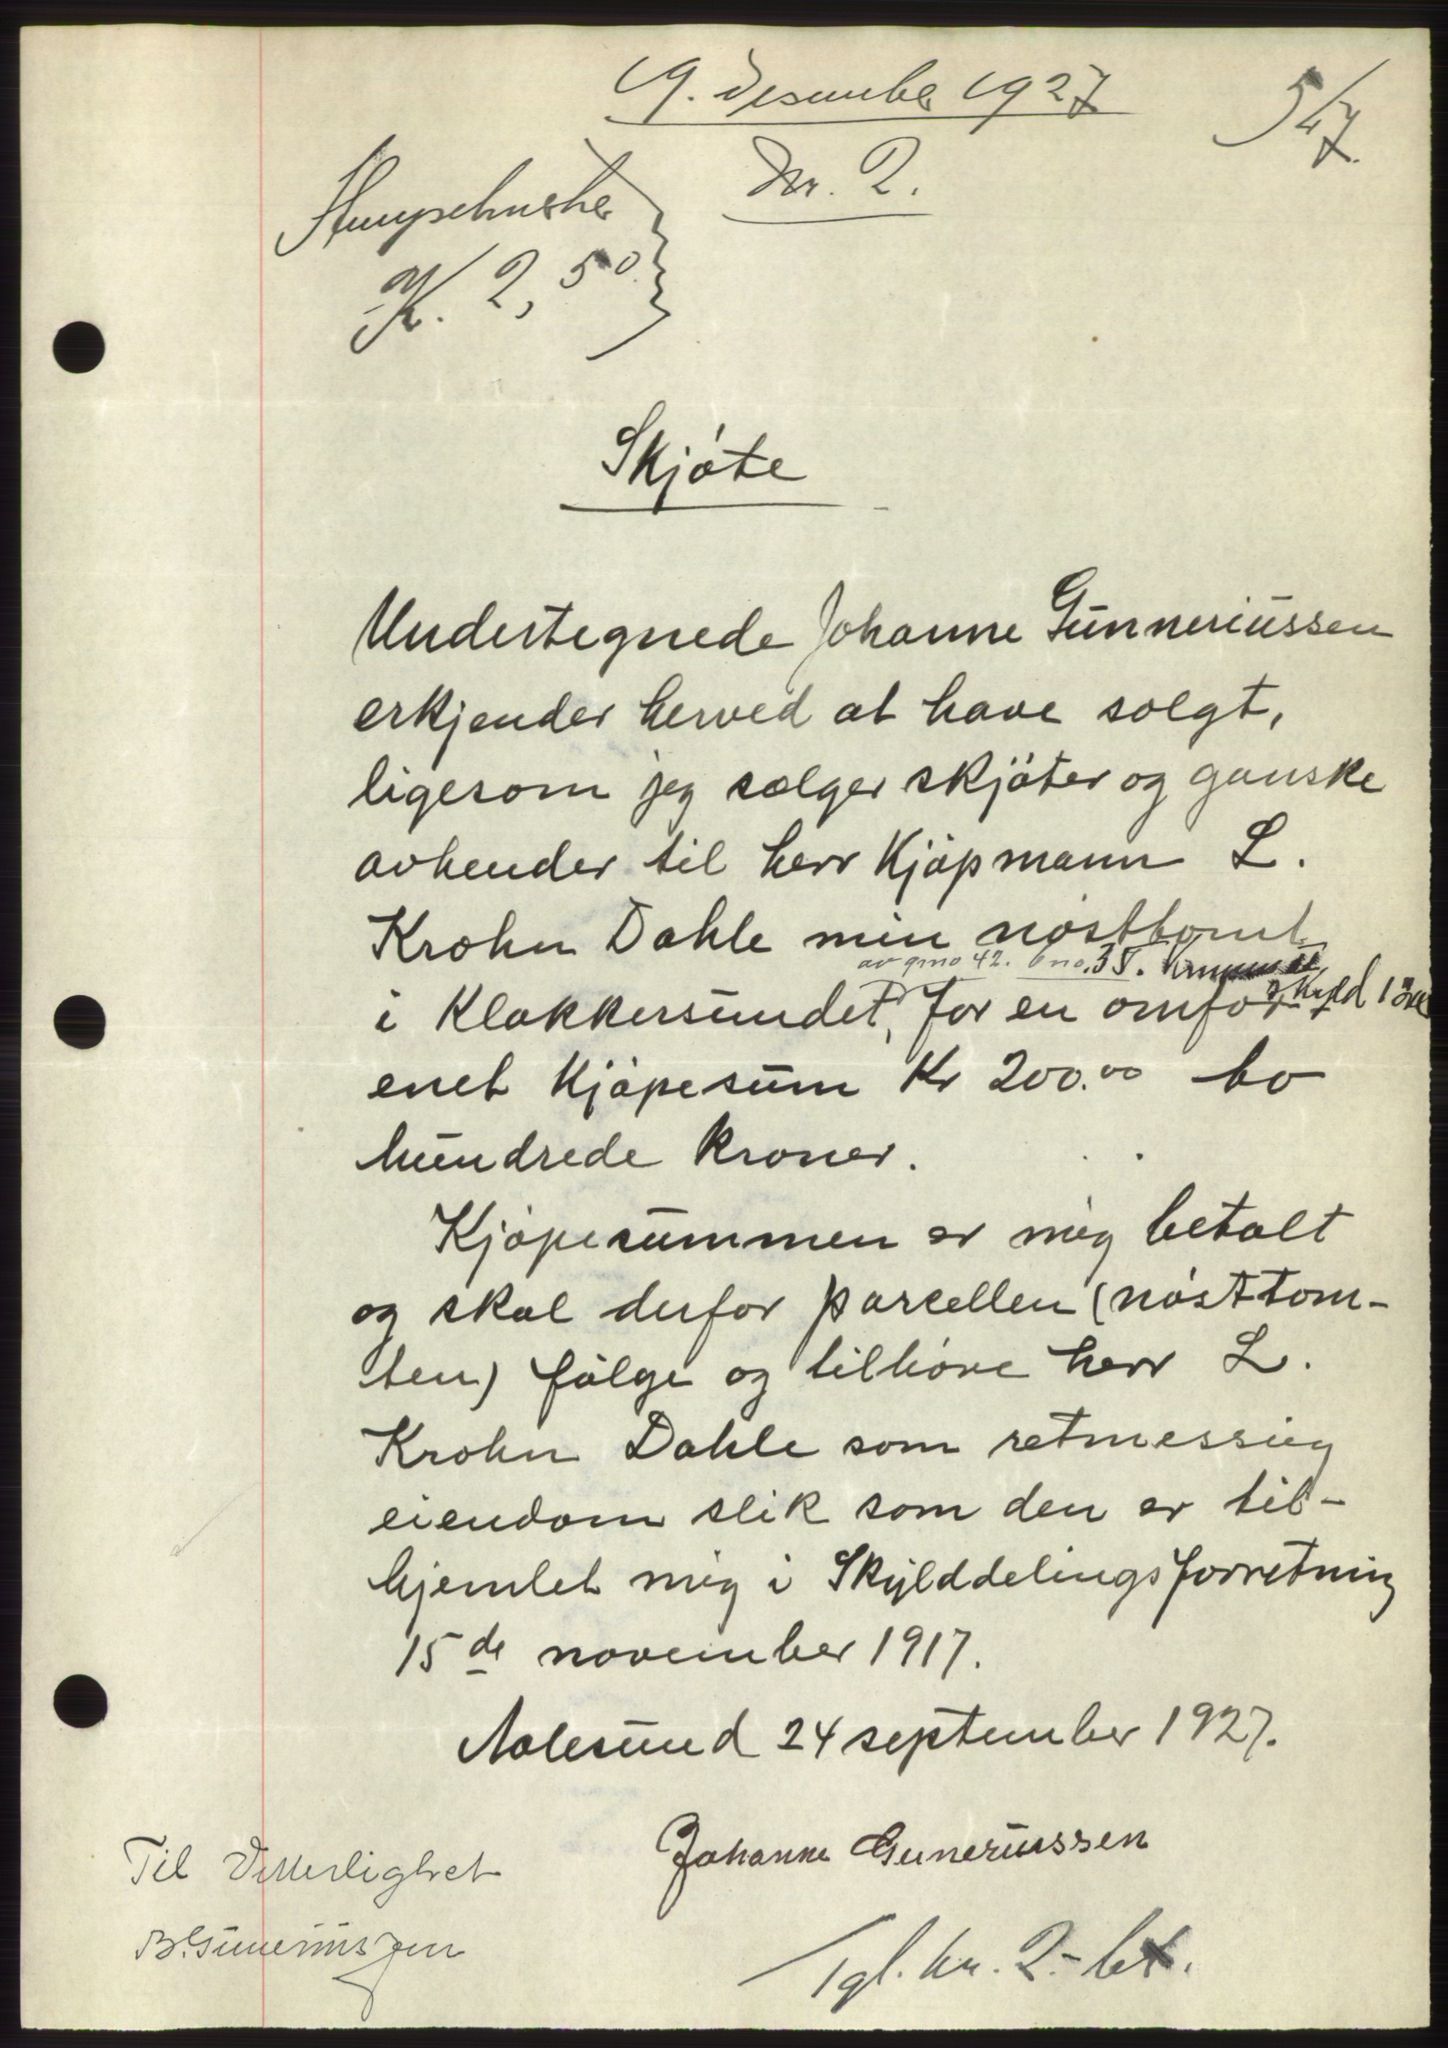 9. desember 1927
547.
Nr. 2.
K. 2,50
Skjøte
Undertegnede Johanne Gunneriussen
erkjender herved at have solgt,
ligesom jeg sælger skjøter og ganske
avhender til herr Kjøpmann L.
Krohn Dahle min nøsttomt
av gno 42. bno. 35.
skyld 1 øre
i Klokkersundet, for en omfor-
enet Kjøpesum Kr 200.00 to
hundrede kroner.
Kjøpesummen er mig betalt
og skal derfor parcellen (nøsttom-
ten) følge og tilhøre herr L.
Krohn Dahle som retmessig
eiendom slik som den er til-
hjemlet mig i Skylddelingsforretning
15de november 1917.
Aalesund 24 september 1927.
Johanne Guneriussen
Til Vitterlighet
B. Guneriussen
Tgl. kr. 2.- bet.